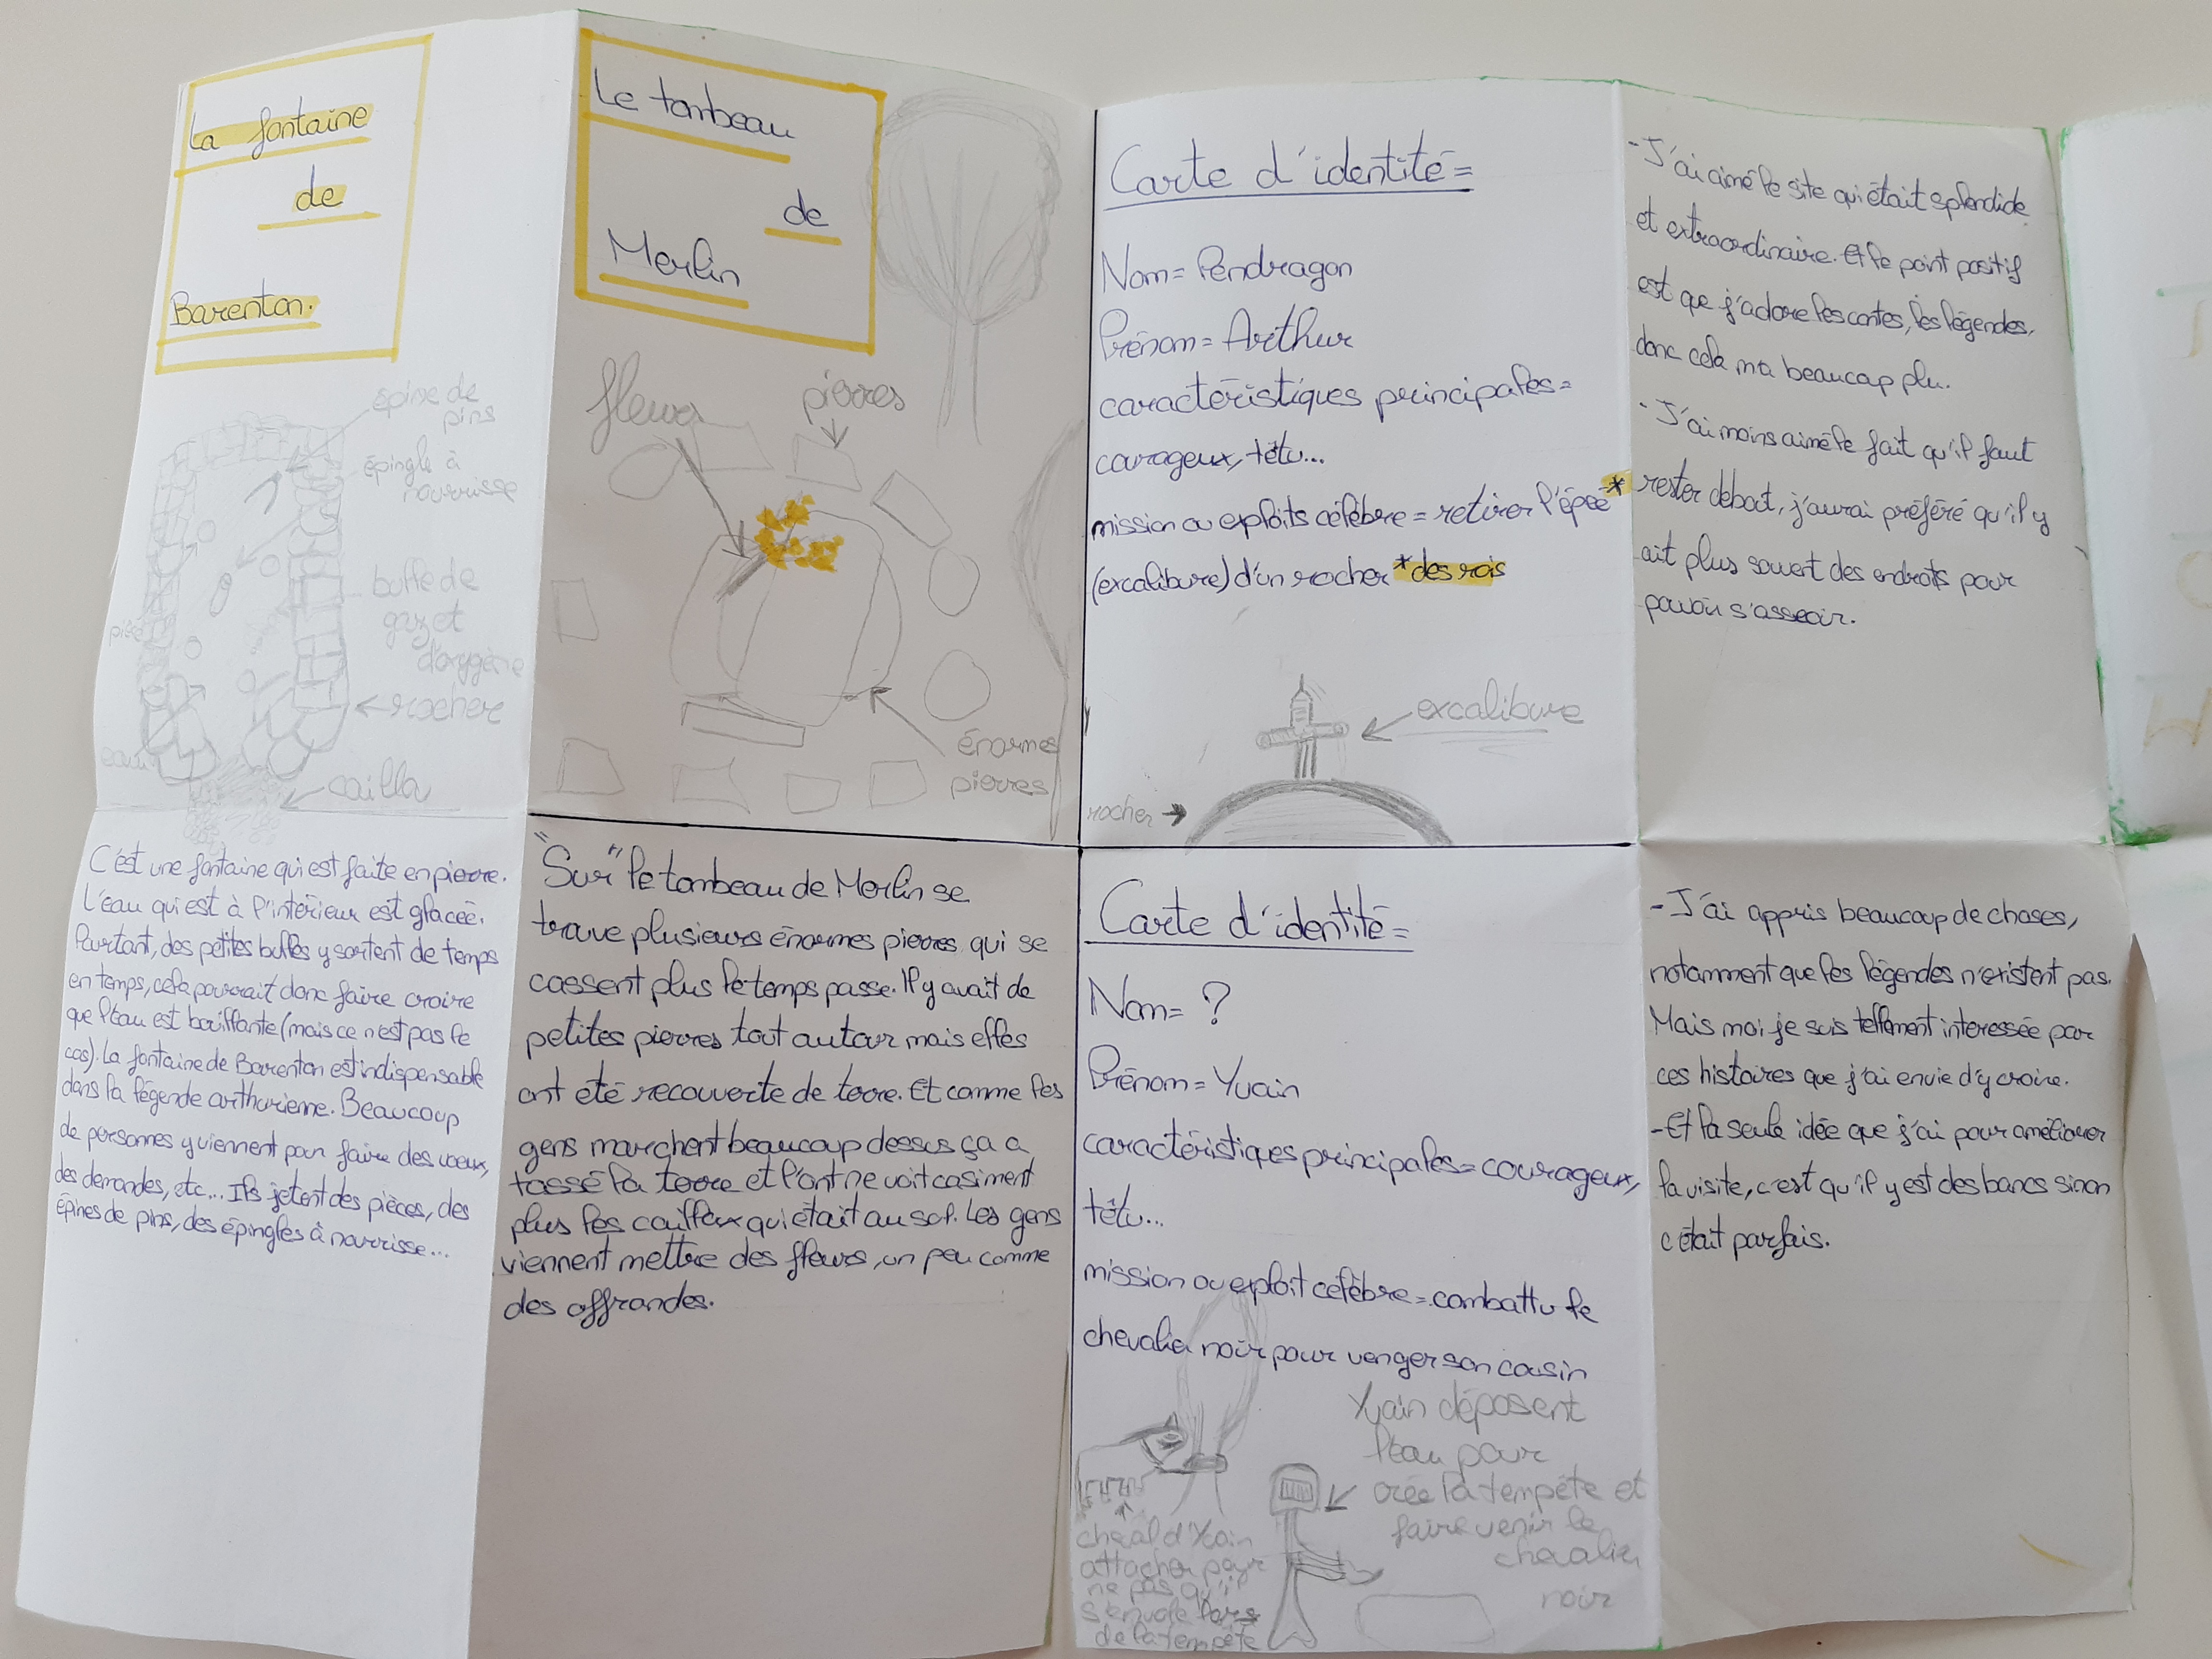 La fontaine
de
Barenton.
épine de
pins
épingle à
nourrisse
bulle de
gaz et
d'oxygène
rocher
eau
caillou
C'est une fontaine qui est faite en pierre.
L'eau qui est à l'intérieur est glacée.
Pourtant, des petites bulles y sortent de temps
en temps, cela pourrait donc faire croire
que l'eau est bouillante (mais ce n'est pas le
cas). La fontaine de Barenton est indispensable
dans la légende arthurienne. Beaucoup
de personnes y viennent pour faire des voeux,
des demandes, etc... Ils jetent des pièces, des
épines de pins, des épingles à nourrisse...
Le tombeau
de
Merlin
fleurs
pierres
énormes
pierres
"Sur" le tombeau de Merlin se
trouve plusieurs énormes pierres qui se
cassent plus le temps passe. Il y avait de
petites pierres tout autour mais elles
ont été recouverte de terre. Et comme les
gens marchent beaucoup dessus ça a
tassé la terre et l'ont ne voit casiment
plus les cailloux qui était au sol. Les gens
viennent mettre des fleurs, un peu comme
des offrandes.
Carte d'identité =
Nom = Pendragon
Prénom = Arthur
caractéristiques principales =
courageux, têtu...
mission ou exploits célèbre = retirer l'épée *
(excalibure) d'un rocher * des rois
excalibure
rocher
Carte d'identité =
Nom = ?
Prénom = Yvain
caractéristiques principales = courageux,
têtu...
mission ou exploit célèbre = combattu le
chevalier noir pour venger son cousin
Yvain déposent
l'eau pour
crée la tempête et
faire venir le
chevalier
noir
cheval d'Yvain
attacher pour
ne pas qu'il
s'envole lors
de la tempête
- J'ai aimé le site qui était splendide
et extraordinaire. Et le point positif
est que j'adore les contes, les légendes,
donc cela ma beaucoup plu.
- J'ai moins aimé le fait qu'il faut
rester debout, j'aurai préféré qu'il y
ait plus souvent des endroits pour
pouvoir s'asseoir.
- J'ai appris beaucoup de choses,
notamment que les légendes n'existent pas.
Mais moi je suis tellement interessée par
ces histoires que j'ai envie d'y croire.
- Et la seule idée que j'ai pour améliorer
la visite, c'est qu'il y est des bancs sinon
c'était parfais.